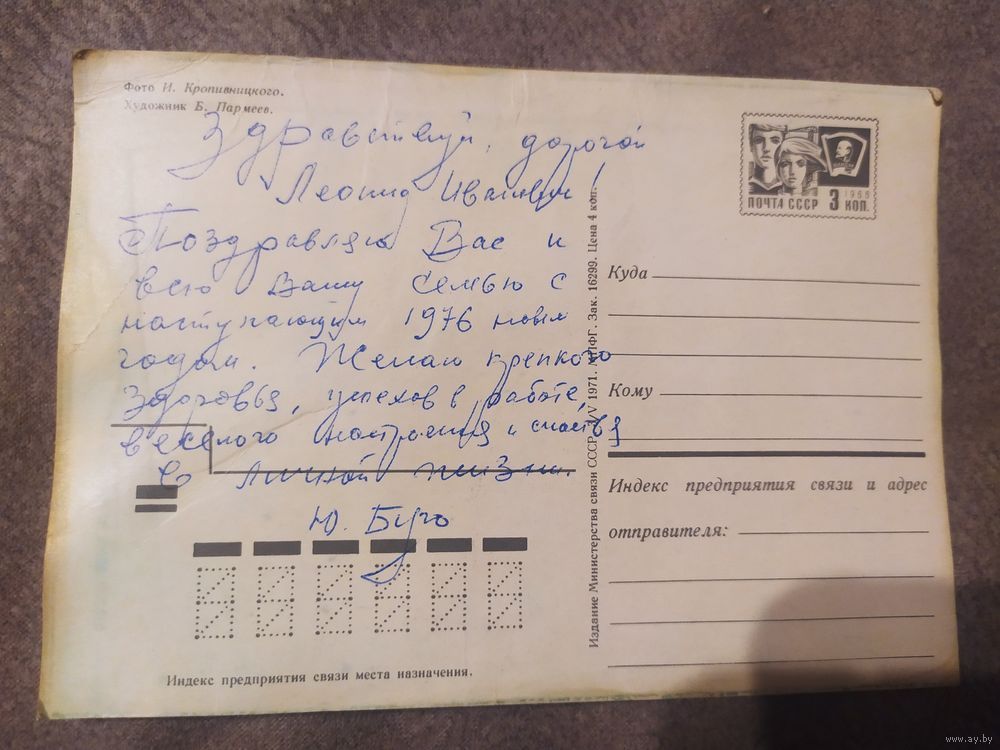 Фото И. Кропивницкого.
Художник Б. Пармеев.
Здравствуй, дорогой
Леонид Иванович!
Поздравляю Вас и
всю Вашу семью с
наступающим 1976 новым
годом. Желаю крепкого
здоровья, успехов в работе,
веселого настроения и счастья
в личной жизни.
Ю.
Индекс предприятия связи места назначения.
Издание Министерства связи СССР. 3/V 1971. МПФГ. Зак. 16299. Цена 4 коп.
1966
ПОЧТА СССР 3 КОП.
Куда
Кому
Индекс предприятия связи и адрес
отправителя:
www.ay.by